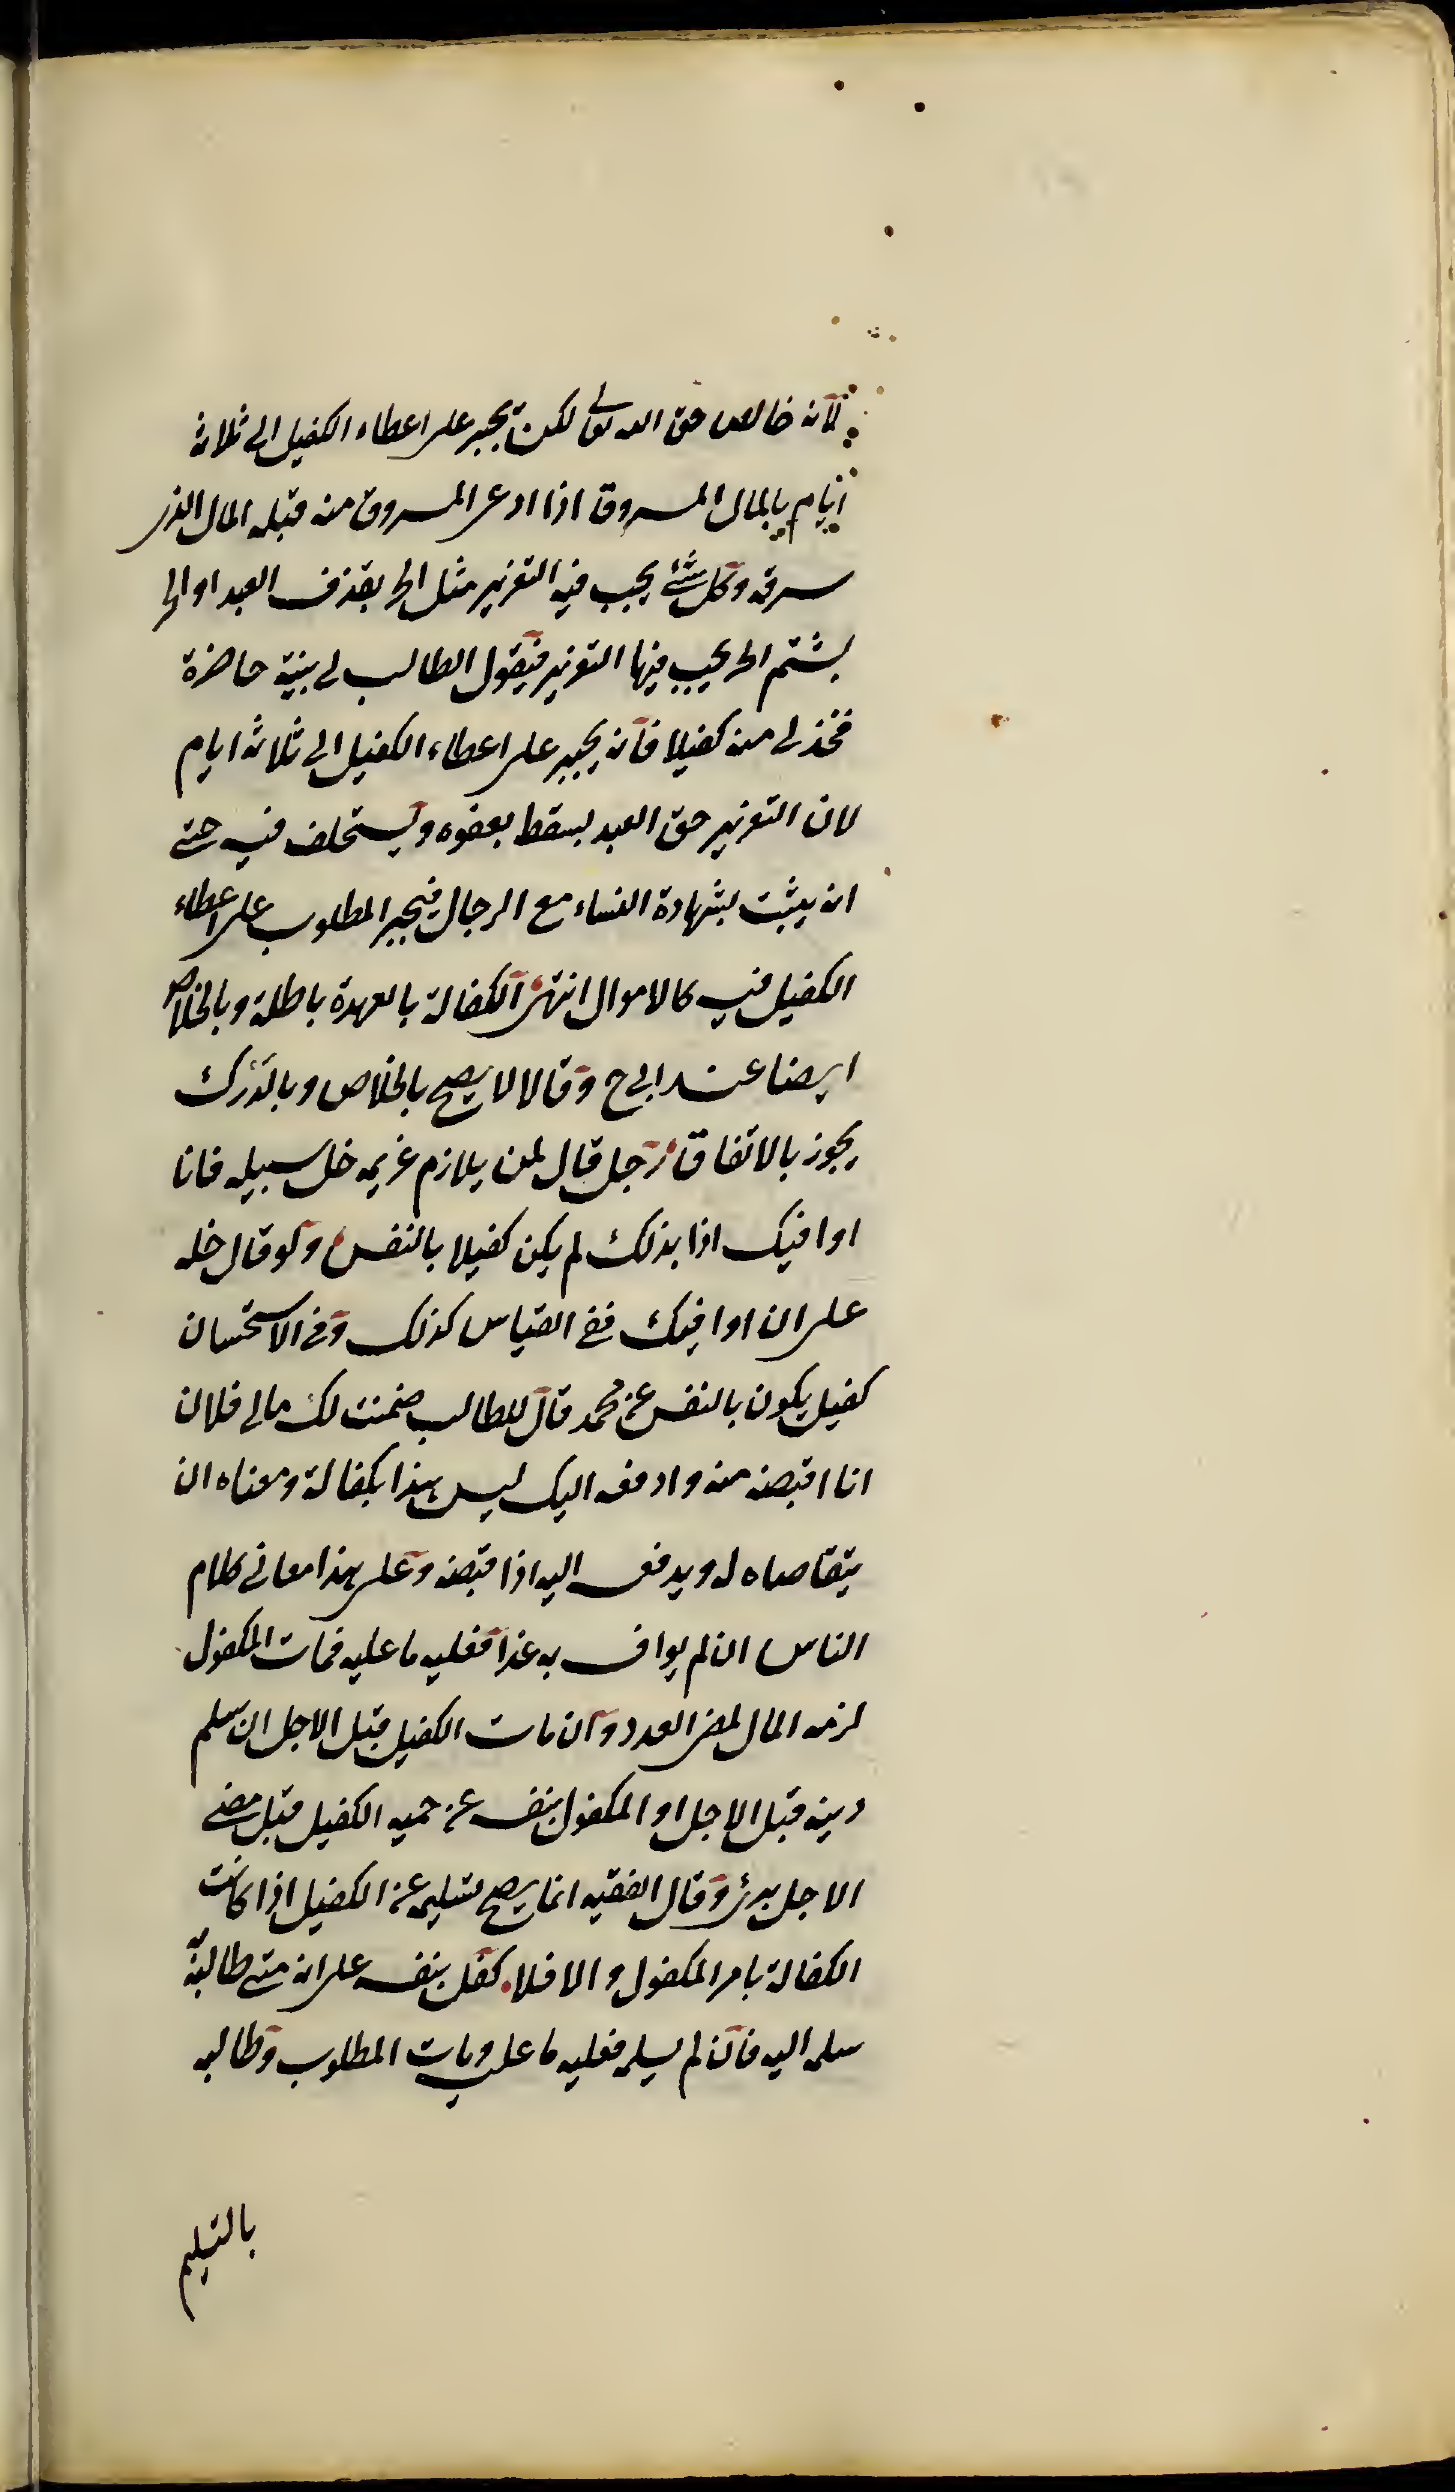 لانه خالص حق الله تعالى لكن يجبر على اعطاء الكفيل الى ثلاثة
ايام بالمال المسروق اذا ادعى المسروق منه قبله المال الذى
سرقه وكل شئ يجب فيه التعزير مثل الحر يقذف العبد او الحر
يشتم الحر يجب فيها التعزير فيقول الطالب لى بينة حاضرة
فخذ لى منه كفيلا فانه يجبر على اعطاء الكفيل الى ثلاثة ايام
لان التعزير حق العبد يسقط بعفوه ويستحلف فيه حتى
انه يثبت بشهادة النساء مع الرجال فيجبر المطلوب على اعطاء
الكفيل فيه كالاموال انتهى الكفالة بالعهدة باطلة وبالخلاص
ايضا عند ابى ح وقالا لا يصح بالخلاص وبالدرك
يجوز بالاتفاق رجل قال لمن يلازم غريمه خل سبيله فانا
اوافيك اذا بذلك لم يكن كفيلا بالنفس ولو قال خله
على ان اوافيك ففى القياس كذلك وفى الاستحسان
كفيل يكون بالنفس عن محمد قال للطالب ضمنت لك مالى فلان
انا اقبضه منه وادفعه اليك ليس هذا بكفالة ومعناه ان
يتقاضاه له ويدفعه اليه اذا قبضه وعلى هذا معانى كلام
الناس ان لم يواف به غدا فعليه ما عليه فمات المكفول
لزمه المال لمضى العدد وان مات الكفيل قبل الاجل ان سلم
دينه قبل الاجل او المكفول بنفسه عن جهة الكفيل قبل مضى
الاجل برئ وقال الفقيه انما يصح تسليمه عن الكفيل اذا كانت
الكفالة بامر المكفول والا فلا كفل بنفسه على انه متى طالبه
سلمه اليه فان لم يسلمه فعليه ما عليه ومات المطلوب وطالبه
بالتسليم